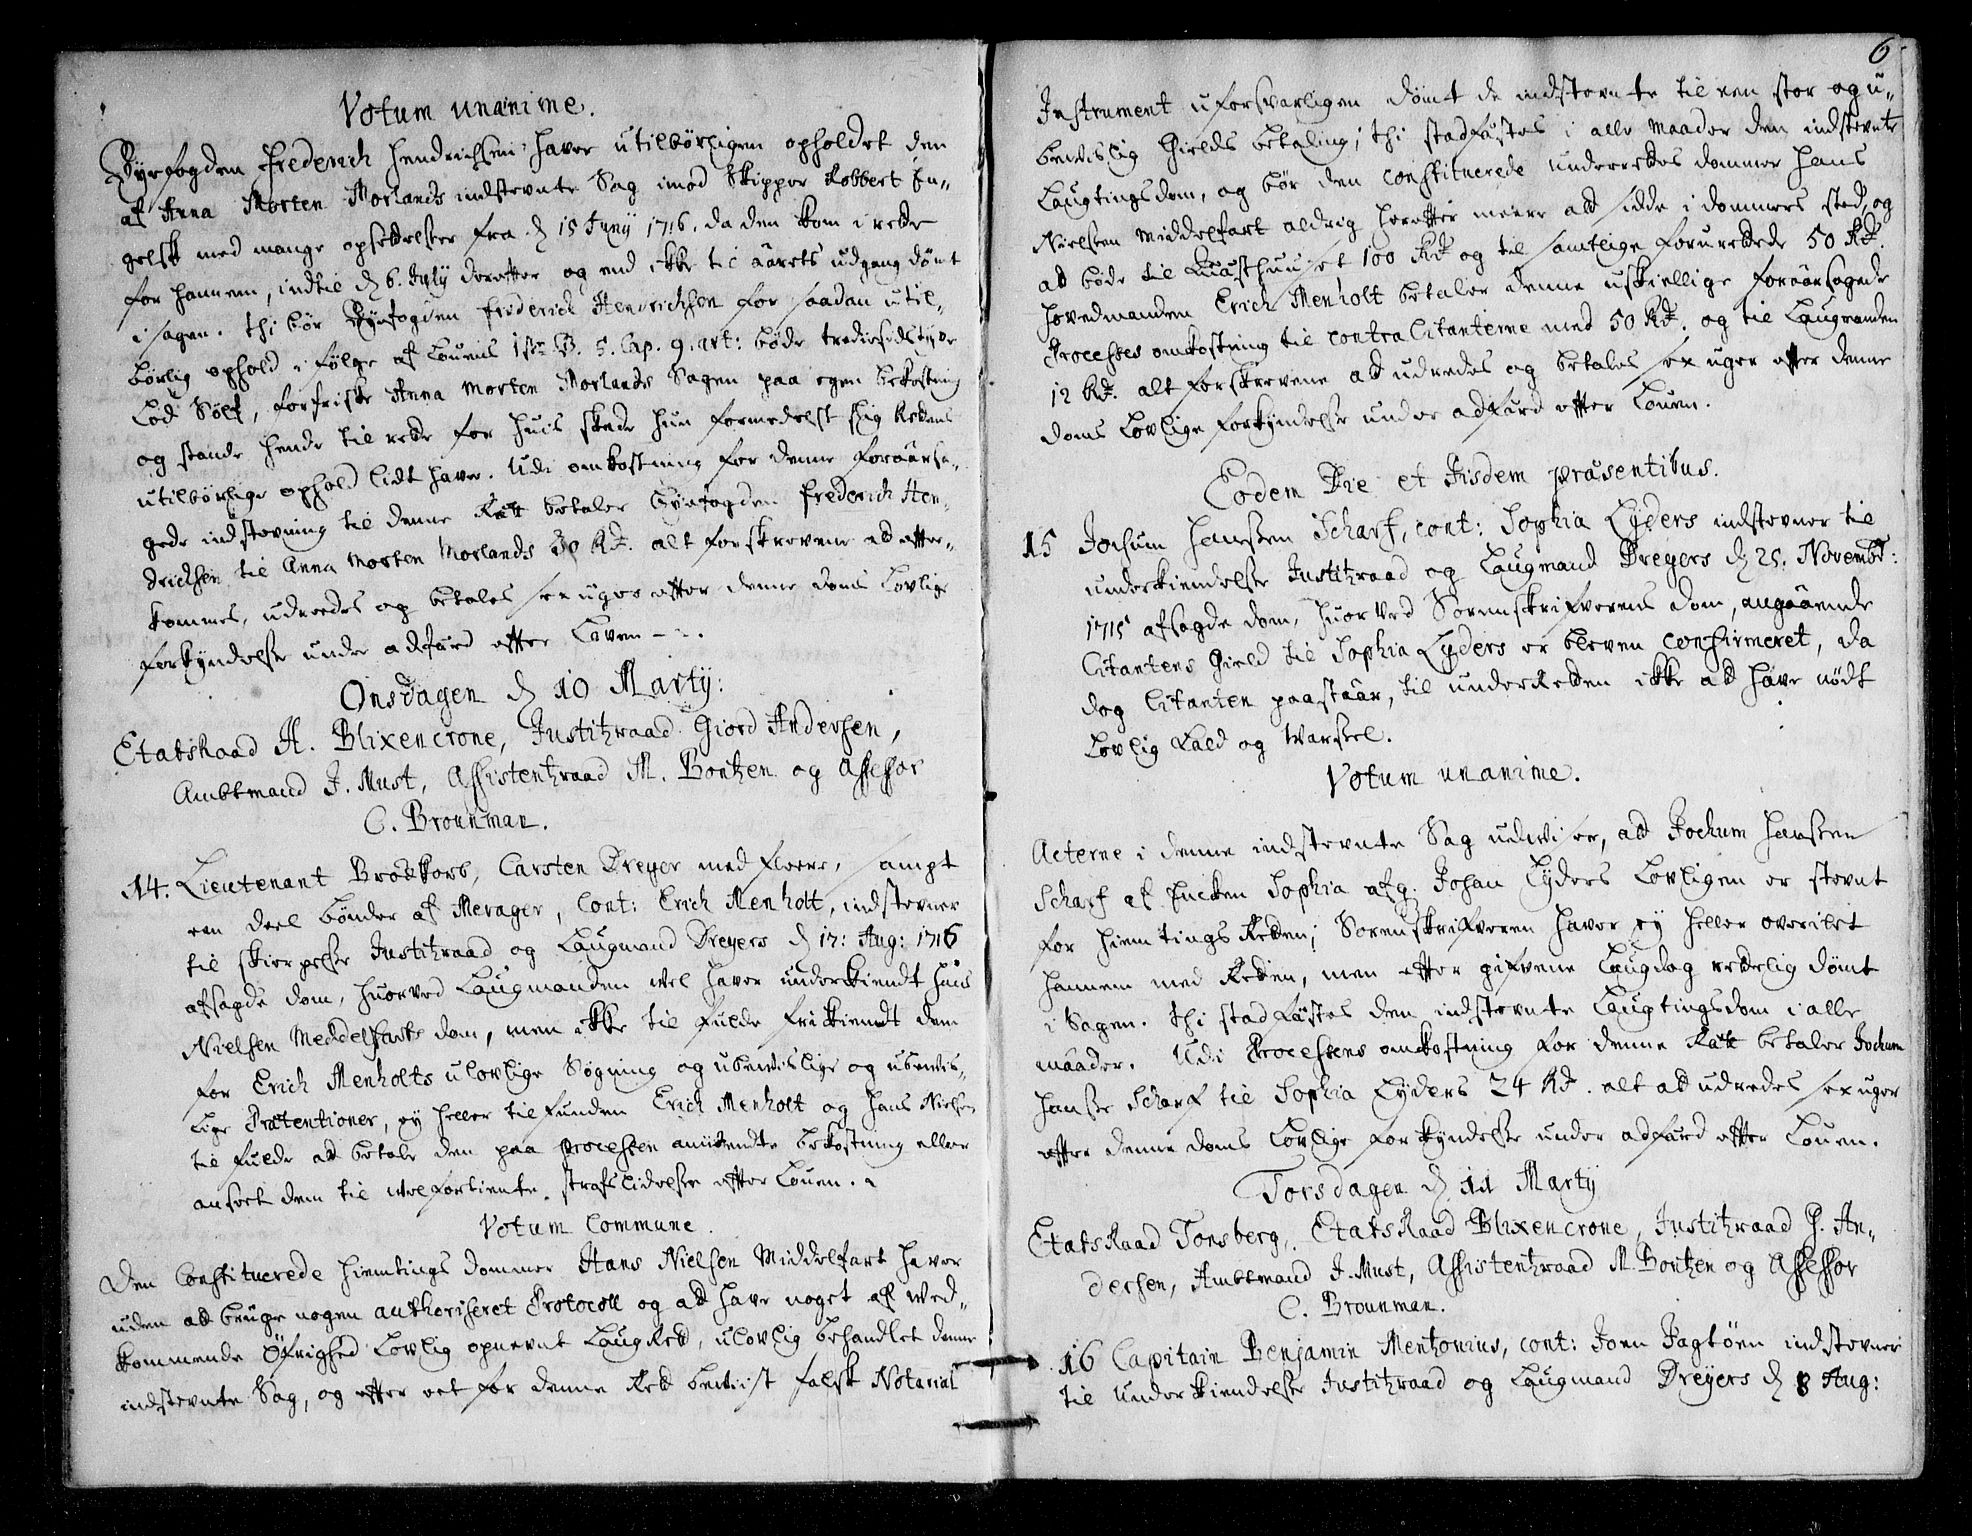 Votum unanime.
Byefogden Frederich Hendrichsen haver utilbørligen opholdet den
af Anna Morten Morlands indstevnte Sag imod Skipper Robbert En-
gelsk med mange opsettelser fra d 15 Juny 1716. da den kom i rette
for hannem, indtil d 6. July derefter og end ikke til aarets udgang dømt
i sagen. Thi bør Byefogden Friderich Hendrichsen for saadan util-
børlig ophold i følge af Louens 1ste B. 5. Cap. 9. art: bøde tredivesidstyve
Lod Sølf, forfriske Anna Morten Morlands Sagen paa egen bekostning
og stande hende til rette for huis skade hun formedelst slig Rettens
utilbørlige ophold lidt haver. Udi omkostning for denne foraarsa-
gede indstevning til denne Rætt betaler Byefogden Frederich Hen-
drichsen til Anna Morten Morlands 30 Rd. alt forskrevene at efter-
kommes, udreedes og betales sex uger efter denne doms Lovlige
forkyndelse under adfærd efter Loven.
Onsdagen d 10 Marty:
Etatsraad A. Blixencrone, Justitzraad Giord Andersen,
Ambtmand J. Must, Assistentzraad M. Bentzen og Assessor
C. Brounman.
14. Lieutenant Brodkorb, Carsten Dreyer med fleere, sampt
een deel bønder af Merager, Cont: Erich Menholt, indstevner
til skierpelse Justitzraad og Laugmand Dreyers d 17: Aug: 1716
afsagde dom, huorved Laugmanden vel haver underkiendt Hans
Nielsen Meddelfarts dom, men ikke til fulde frikiendt dem
for Erich Menholts ulovlige Søgning og ubevislige og ubevis-
lige Prætentioner, ey heller tilfunden Erich Menholt og Hans Nielsen
til fulde at betale den paa processen anvendte bekostning eller
anseet dem til velfortiente strafs lidelse efter Louen.
Votum Commune.
Den Constituerede hiemtings dommer Hans Nielsen Middelfart haver
uden at bruge nogen authoriseret Protocoll og at have noget af ved-
kommende Øfrighed Lovlig opnevnt LaugRett, ulovlig behandlet denne
indstevnte Sag, og efter eet for denne Rett beviist falsk Notarial
6
Instrument uforsvarligen dømt de indstevnte til een stor og u-
bevislig Gields betaling; thi stadfæstes i alle maader den indstevnte
Laugtingsdom, og bør den Constituerede underrettes dommer Hans
Nielsen Middelfart aldrig herefter meere at sidde i dommers sted, og
at bøde til Quæsthuuset 100 Rd og til samtlige forurettede 50 Rd.
Hovedmanden Erich Menholt betaler denne uskiellige foraarsagede
Processes omkostning til contra Citanterne med 50 Rd. og til Laugmanden
12 Rd. alt forskrevene at udredes og betales sex uger efter denne
doms Lovlige forkyndelse under adfærd efter Louen.
Eodem Die et Iisdem præsentibus.
15 Jochum Hanssen Scharf, cont: Sophia Lyders indstevner til
underkiendelse Justitzraad og Laugmand Dreyers d 25. Novembr:
1715 afsagde dom, huorved Sorenskrifverens dom, angaaende
Citantens Gield til Sophia Lyders er bleven confirmeret, da
dog Citanten paastaar, til underRetten ikke at have nødt
Lovlig Kald og Varsel.
Votum unanime.
Acterne i denne indstevnte Sag udviser, at Jochum Hanssen
Scharf af Encken Sophia afg. Johan Lyders Lovligen er stevnt
for hiemtings Retten; Sorenskrifveren haver ey heller overilet
hannem med Retten, men efter gifvene Laugdag endelig dømt
i Sagen. Thi stadfæstes den indstevnte Laugtingsdom i alle
maader. Udi Processens omkostning for denne Rætt betaler Jochum
Hansse Scharf til Sophia Lyders 24 Rd. alt at udredes sex uger
efter denne doms Lovlige forkyndelse under adfærd efter Louen.
Torsdagen d 11 Marty
EtatsRaad Tonsberg, EtatsRaad Blixencrone, Justitzraad G. An-
dersen, Ambtmand J. Must, Assistentzraad M. Bentzen og Assessor
C. Brounman.
16 Capitain Benjamin Mentzonius, cont: Joen Jagtøen indstevner
til underkiendelse Justitzraad og Laugmand Dreyers d 8 Aug: